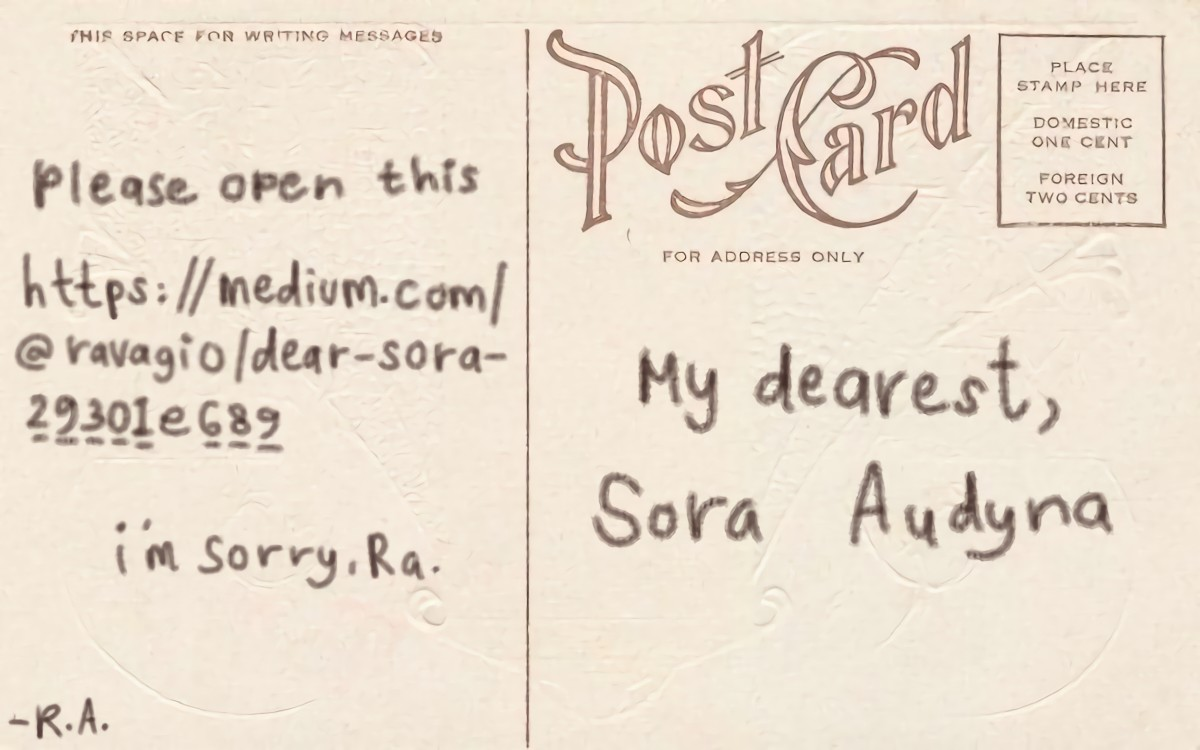 THIS SPACE FOR WRITING MESSAGES
Please open this
https://medium.com/
@ravagio/dear-sora-
29301e689
i'm sorry, Ra.
-R.A.
Post Card
PLACE
STAMP HERE
DOMESTIC
ONE CENT
FOREIGN
TWO CENTS
FOR ADDRESS ONLY
My dearest,
Sora Audyna